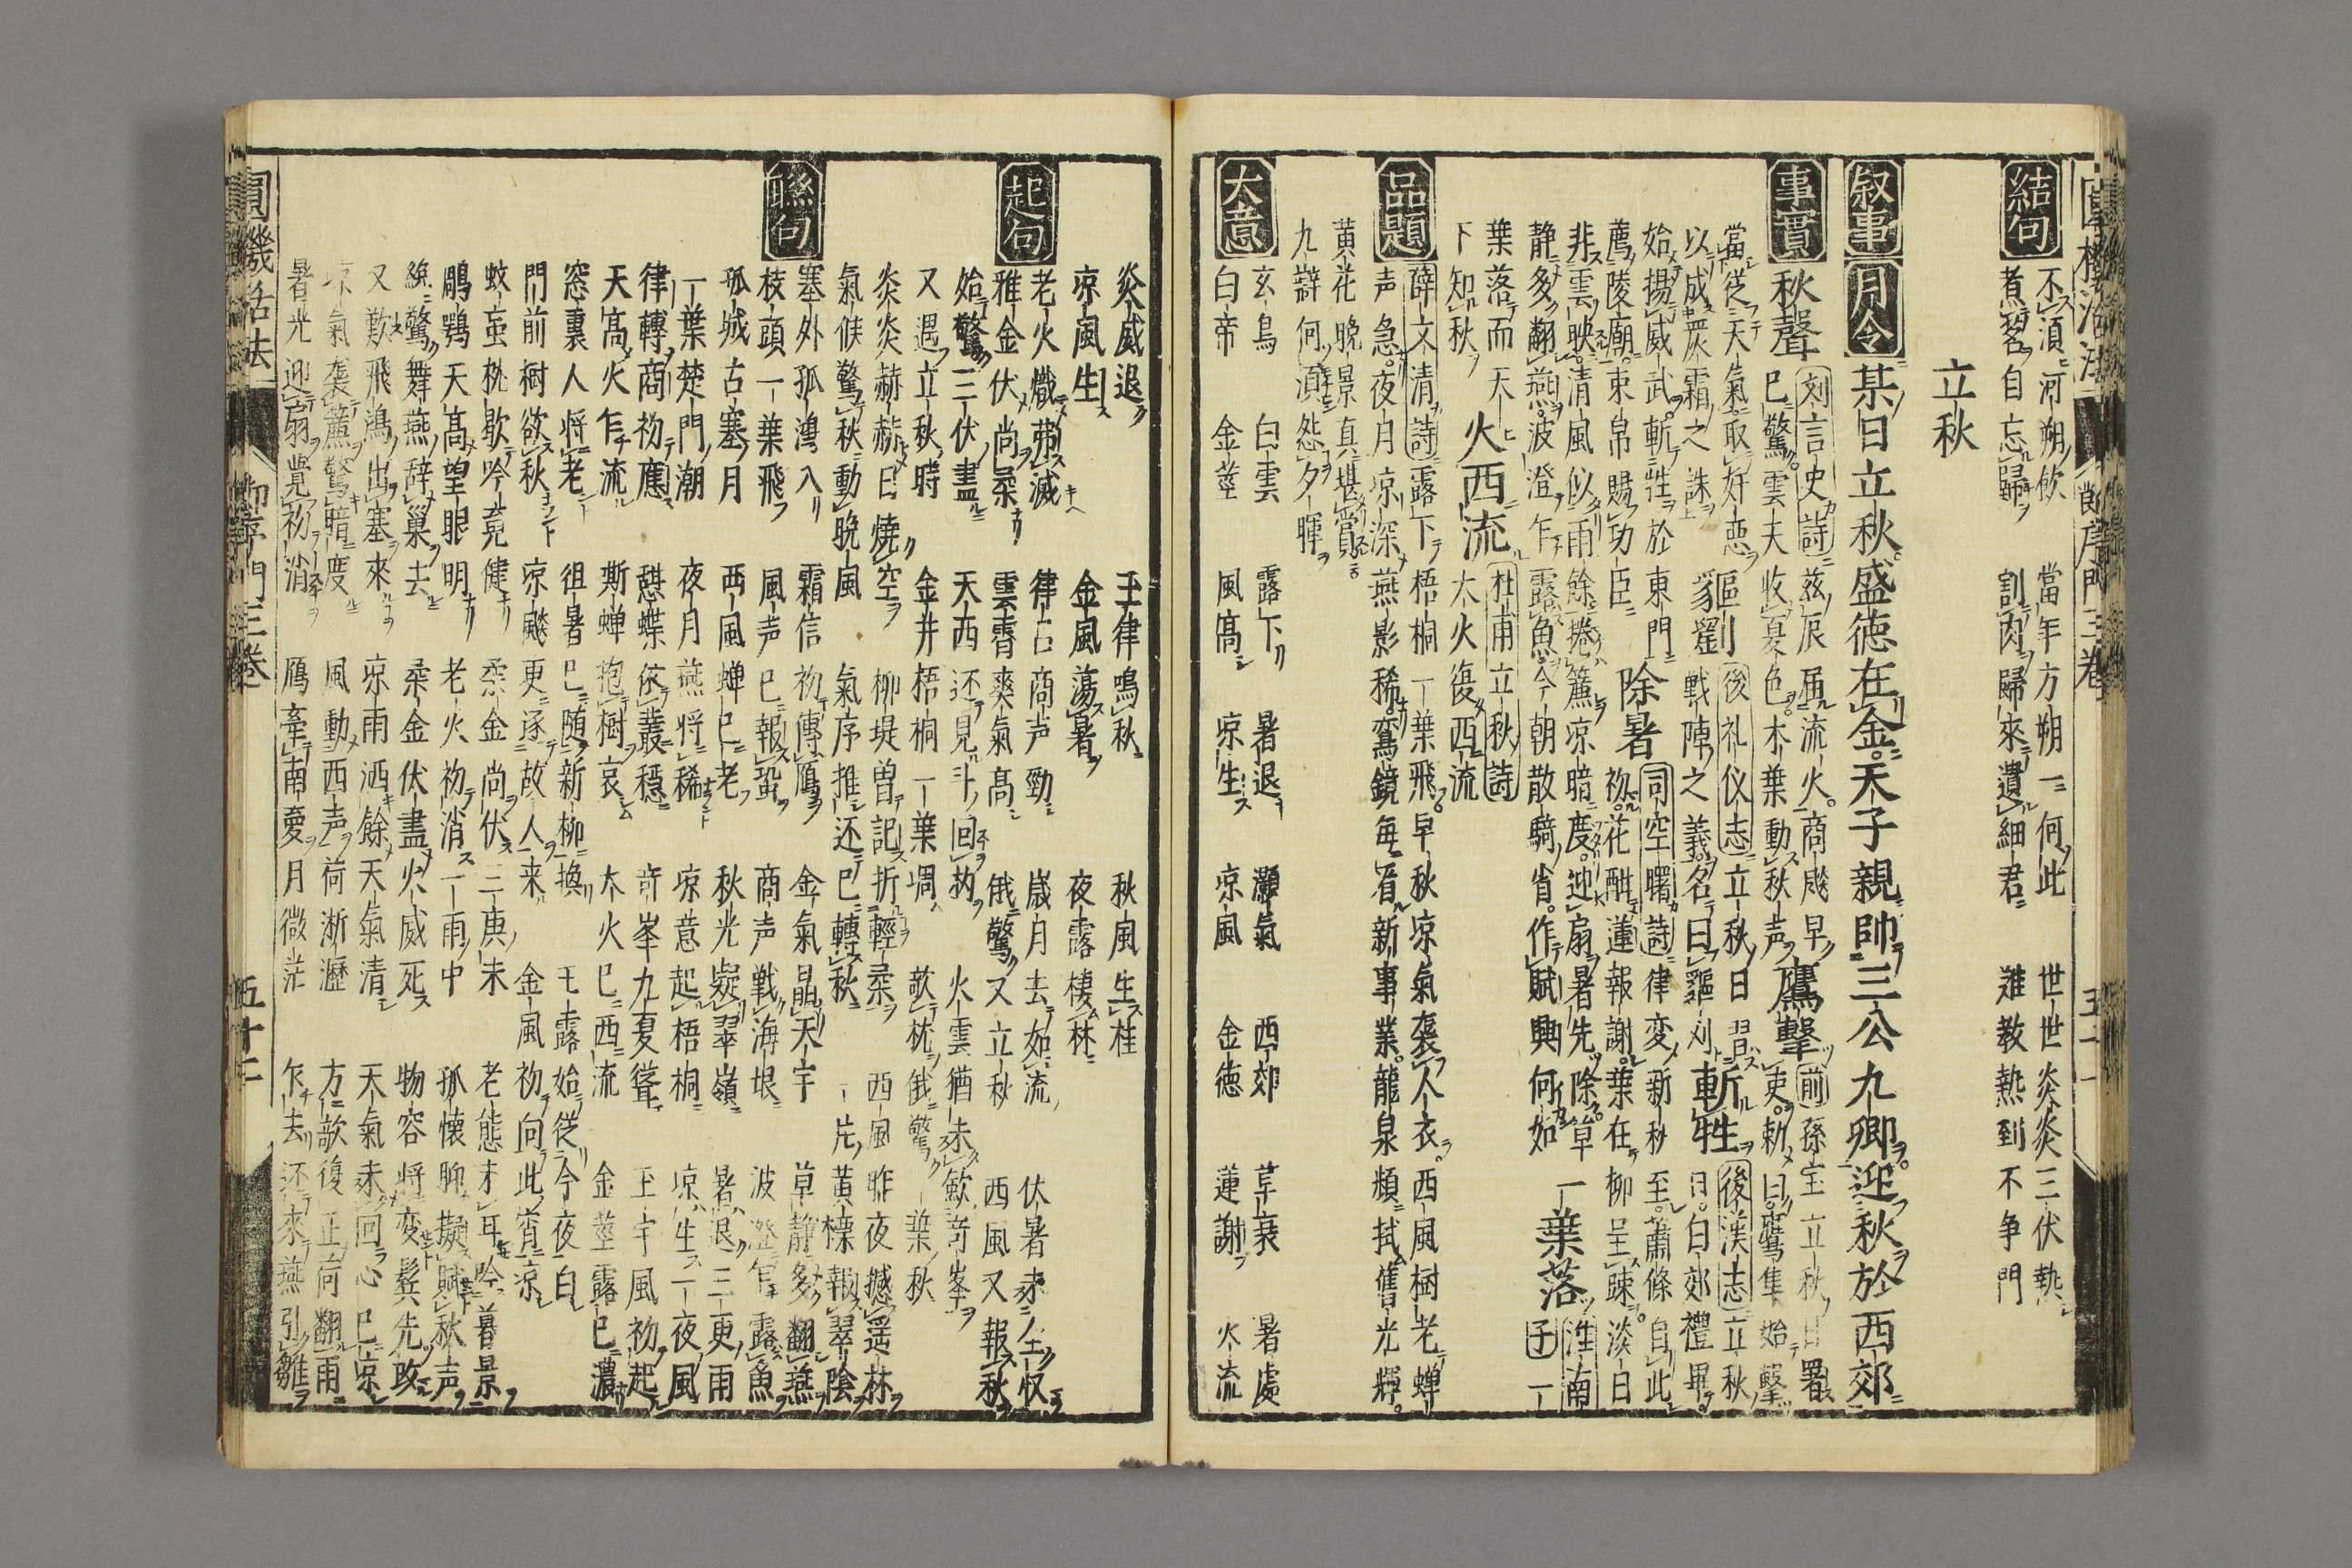 結句
不須河朔飲 當年方朔一何此 世世炎炎三伏熱
煮茗自忘歸 割肉歸來遺細君 誰教熱到不争門
立秋
叙事 月令 某日立秋盛徳在金天子親帥三公九卿迎秋於西郊
事實 秋聲 刘言史詩 茲辰届流火商飈早
已驚雲天收夏色木葉動秋声 鷹撃 前孫宝立秋日署
吏敕曰鷹隼始撃
當従天気取奸悪
以成嚴霜之誅 貙劉 後礼仪志立秋日
戦陣之義名曰貙刘 斬牲 後漢志立秋
日白郊禮畢
始揚威武斬牲於東門
薦陵廟束帛賜功臣 除暑 司空曙詩律変新秋至蕭條自此
初花酣蓮報謝葉在柳呈踈淡日
非雲映清風似雨餘捲簾凉暗度迎扇暑先除草
静多翻燕波澄乍露魚今朝散騎省作賦興何如 一葉落 淮南子一
葉落而天
下知秋 火西流 杜甫立秋詩
大火復西流
品題 薛文清詩露下梧桐一葉飛早秋凉氣襲人衣西風樹老蝉
声急夜月凉深燕影稀鸞鏡毎看新事業龍泉頻拭舊光輝
黄花晩景真堪賞
九辯何須怨夕暉
大意
玄鳥 白雲 露下 暑退 灝氣 西郊 草衰 暑處
白帝 金莖 風高 凉生 凉風 金徳 蓮謝 火流
炎威退 玉律鳴秋 秋風生桂
凉風生 金風蕩暑 夜露棲林
起句
老火熾弗滅 律占商声勁 歳月去如流 伏暑未全収
雅金伏尚柔 雲霄爽氣高 俄驚又立秋 西風又報秋
始驚三伏盡 天西还見斗回杓 火雲猶未歛奇峯
又遇立秋時 金井梧桐一葉凋 欹枕俄驚一葉秋
炎炎赫赫日燒空 柳堤曽記折輕柔 西風昨夜撼遥林
氣候驚秋動晩風 氣序推还已轉秋 一片黄標報翠陰
聯句
塞外孤鴻入 霜信初傳鴈 金氣晶天宇 草静多翻燕
枝頭一葉飛 風声已報蛩 商声戦海垠 波澄乍露魚
孤城古塞月 西風蝉已老 秋光凝翠嶺 暑退三更雨
一葉楚門潮 夜月燕将稀 凉意起梧桐 凉生一夜風
律轉商初應 憇蝶依叢穏 奇峯九夏聳 玉宇風初起
天高火乍流 斯蝉抱樹哀 大火已西流 金莖露已濃
窓裏人将老 徂暑已随新柳換 玉露始従今夜白
門前樹欲秋 凉飈更逐故人来 金風初向此宵凉
蚊䖟枕歇吟竟健 柔金尚伏三庚末 老態未耳吟暮景
鵰鶚天高望眼明 老火初消一雨中 孤懐聊擬賦秋声
絶驚舞燕辞巢去 柔金伏盡火威死 物容将変鬂先改
又歎飛鴻出塞來 凉雨洒餘天氣清 天氣未回心已凉
凉氣襲簾驚暗度 風動西声荷淅瀝 方欹復正荷翻雨
暑光迎扇覺初消 鴈牽南愛月微茫 乍去还來燕引雛
圓機活法 節序門三卷 五十二